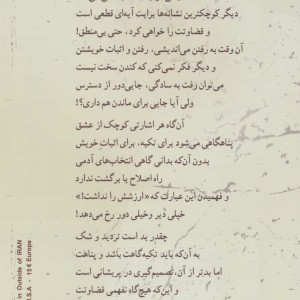 دیگر کوچکترین نشانه‌ها برایت آیه‌ای قطعی است
و قضاوتت را خواهی کرد، حتی بی‌منطق!
آن وقت به رفتن می‌اندیشی، رفتن و اثبات خویشتن
و دیگر فکر نمی‌کنی که کندن سخت نیست
می‌توان رفت به سادگی، جایی‌دور از دسترس
ولی آیا جایی برای ماندن هم داری؟!
آن‌گاه هر اشارتی کوچک از عشق
پناهگاهی می‌شود برای تکیه، برای اثباتِ خویش
بدون آن‌که بدانی گاهی انتخاب‌های آدمی
راه اصلاح یا برگشت ندارد
و فهمیدن این عبارت که «ارزشش را نداشت!»
خیلی دیر وخیلی دور رخ می‌دهد!
چقدر بد است تردید و شک
به آن‌که باید تکیه‌گاهت باشد و پناهت
اما بدتر از آن، تصمیم‌گیری در پریشانی است
و این‌که هیچ‌گاه نفهمی قضاوتت
in Outside of IRAN
.S.A - 15 € Europe